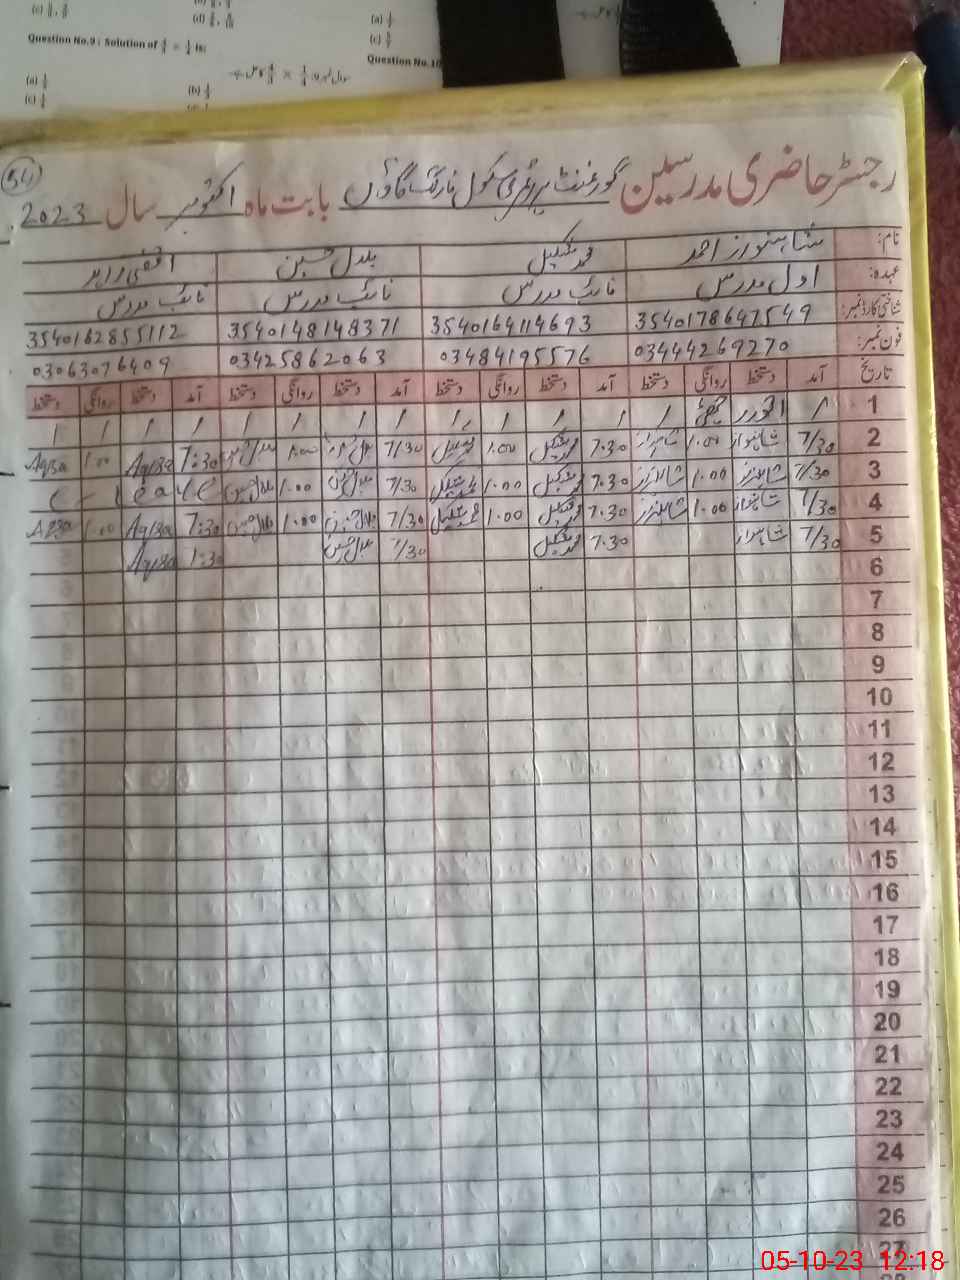 Question No.9 : Solution of
Question No.10
(a)
(b)
(c)
(d)
54
رجسٹر حاضری مدرسین گورنمنٹ پرائمری سکول نارنگ گاؤں بابت ماہ اکتوبر سال 2023
نام: شاہنواز احمد محمد شکیل بلال حسین اقصیٰ زاہد
عہدہ: اول مدرس نائب مدرس نائب مدرس نائب مدرس
شناختی کارڈ نمبر: 3540178647549 3540164114693 3540148148371 3540162855112
فون نمبر: 03444269270 03484195576 03425862063 03063076409
تاریخ آمد دستخط روانگی دستخط آمد دستخط روانگی دستخط آمد دستخط روانگی دستخط آمد دستخط روانگی دستخط
1 / اتوار چھٹی / / / / / / / / / / / / /
2 7/30 شاہنواز 1.00 شاہنواز 7.30 محمد شکیل 1.00 محمد شکیل 7/30 بلال حسین 1.00 بلال حسین 7:30 Aqsa 1.00 Aqsa
3 7/30 شاہنواز 1.00 شاہنواز 7.30 محمد شکیل 1.00 محمد شکیل 7/30 بلال حسین 1.00 بلال حسین
4 7/30 شاہنواز 1.00 شاہنواز 7.30 محمد شکیل 1.00 محمد شکیل 7/30 بلال حسین 1.00 بلال حسین 7:30 Aqsa 1.00 Aqsa
5 7/30 شاہنواز 7.30 محمد شکیل 7/30 بلال حسین 7:30 Aqsa
6
7
8
9
10
11
12
13
14
15
16
17
18
19
20
21
22
23
24
25
26
27
05-10-23 12:18